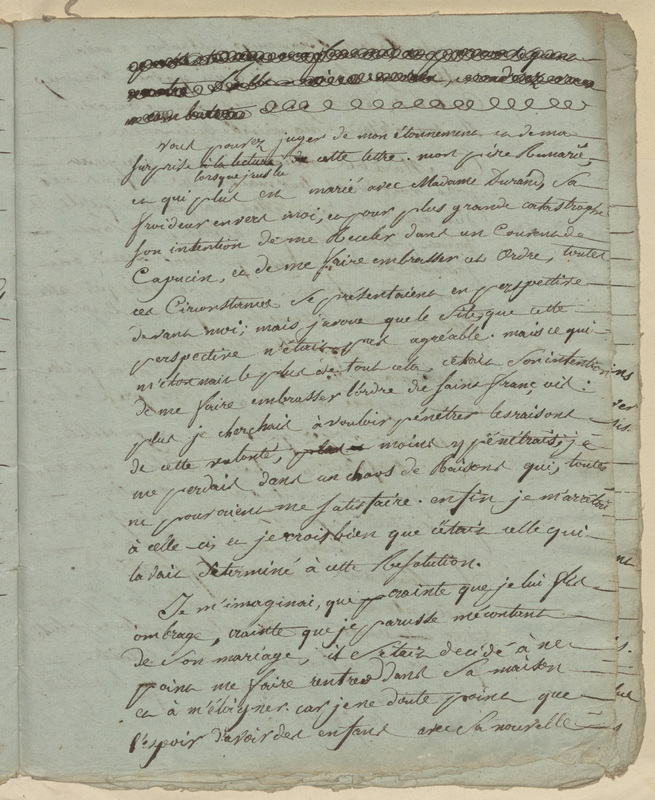 vous pouvez juger de mon étonnement et de ma
surprise à la lecture de cette lettre. mon père Remarié,
lorsque je sus la
et qui plus est marié avec Madame Durand, Sa
froideur envers moi, et pour plus grande catastrophe
son intention de me Recler dans un Couvent de
Capucin, et de me faire embrasser cet Ordre, toutes
ces Circonstances se présentaient en perspective
devant moi; mais j'avoue que le Site, que cette
perspective n'était pas agréable. mais ce qui
m'étonnait le plus de tout cela, c'était son intention
de me faire embrasser l'ordre de saint françois:
plus je cherchais à vouloir pénétrer les raisons
de cette volonté, moins j'y pénétrais; je
me perdais dans un chaos de Raisons qui, toutes
ne pouvaient me satisfaire. enfin je m'arrêtai
à celle-ci, et je crois bien que c'était celle qui
l'avait déterminé à cette Résolution.
Je m'imaginai, que crainte que je lui fus
ombrage, crainte que je parusse mécontent
de Son mariage, il s'était décidé à ne
point me faire rentrer dans Sa maison
et à m'éloigner. car je ne doute point que
l'espoir d'avoir des enfans avec Sa nouvelle